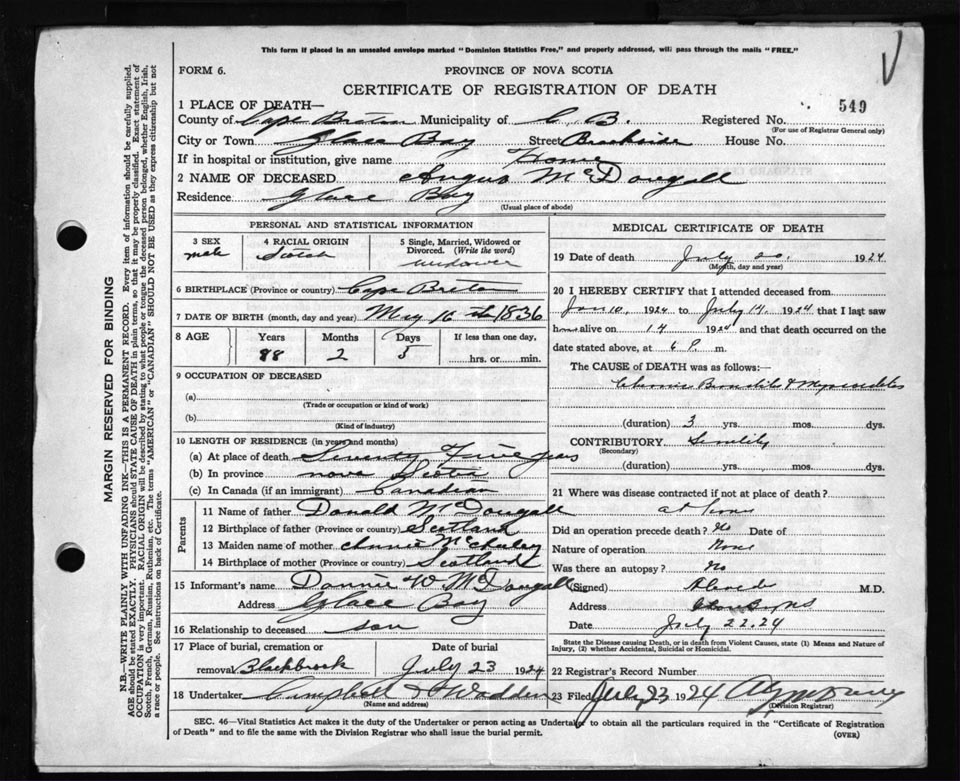 This form if placed in an unsealed envelope marked "Dominion Statistics Free," and properly addressed, will pass through the mails "FREE."
FORM 6.
PROVINCE OF NOVA SCOTIA
CERTIFICATE OF REGISTRATION OF DEATH
1 PLACE OF DEATH—
549
County of Cape Breton Municipality of C. B. Registered No.
(For use of Registrar General only)
City or Town Glace Bay Street Brookside House No.
If in hospital or institution, give name Home
2 NAME OF DECEASED Angus McDougall
Residence Glace Bay
(Usual place of abode)
PERSONAL AND STATISTICAL INFORMATION
3 SEX 4 RACIAL ORIGIN 5 Single, Married, Widowed or Divorced. (Write the word)
male Scotch widower
6 BIRTHPLACE (Province or country) Cape Breton
7 DATE OF BIRTH (month, day and year) May 16 th 1836
8 AGE Years Months Days If less than one day,
88 2 5 hrs. or min.
9 OCCUPATION OF DECEASED
(a)
(Trade or occupation or kind of work)
(b)
(Kind of industry)
10 LENGTH OF RESIDENCE (in years and months)
(a) At place of death Seventy Five years
(b) In province nova Scotia
(c) In Canada (if an immigrant) Canadian
Parents
11 Name of father Donald McDougall
12 Birthplace of father (Province or country) Scotland
13 Maiden name of mother Annie
14 Birthplace of mother (Province or country) Scotland
15 Informant's name Dannie W McDougall
Address Glace Bay
16 Relationship to deceased son
17 Place of burial, cremation or removal Blackbrook
Date of burial July 23 1924
18 Undertaker Campbell & Wadden
(Name and address)
MEDICAL CERTIFICATE OF DEATH
19 Date of death July 20. 1924
(Month, day and year)
20 I HEREBY CERTIFY that I attended deceased from
Jan 10, 1924 to July 14, 1924 that I last saw
him alive on 14 1924 and that death occurred on the
date stated above, at 6 P. m.
The CAUSE of DEATH was as follows:—
Chronic Bronchitis & Myocarditis
(duration) 3 yrs. mos. dys.
CONTRIBUTORY Senility
(Secondary)
(duration) yrs. mos. dys.
21 Where was disease contracted if not at place of death?
at home
Did an operation precede death? No Date of
Nature of operation None
Was there an autopsy? No
(Signed) M.D.
Address
Date July 22.24
State the Disease causing Death, or in death from Violent Causes, state (1) Means and Nature of Injury, (2) whether Accidental, Suicidal or Homicidal.
22 Registrar's Record Number
23 Filed July 23 1924
(Division Registrar)
SEC. 46—Vital Statistics Act makes it the duty of the Undertaker or person acting as Undertaker to obtain all the particulars required in the "Certificate of Registration
of Death" and to file the same with the Division Registrar who shall issue the burial permit.
(OVER)
MARGIN RESERVED FOR BINDING
N.B.—WRITE PLAINLY WITH UNFADING INK—THIS IS A PERMANENT RECORD. Every item of information should be carefully supplied.
AGE should be stated EXACTLY. PHYSICIANS should STATE CAUSE OF DEATH in plain terms, so that it may be properly classified. Exact statement of
OCCUPATION is very important. RACIAL ORIGIN will be described by stating to what people or tongue the deceased person belonged, whether English, Irish,
Scotch, French, German, Russian, Ruthenian, etc. The terms "AMERICAN" or "CANADIAN" SHOULD NOT BE USED as they express citizenship but not
a race or people. See instructions on back of Certificate.